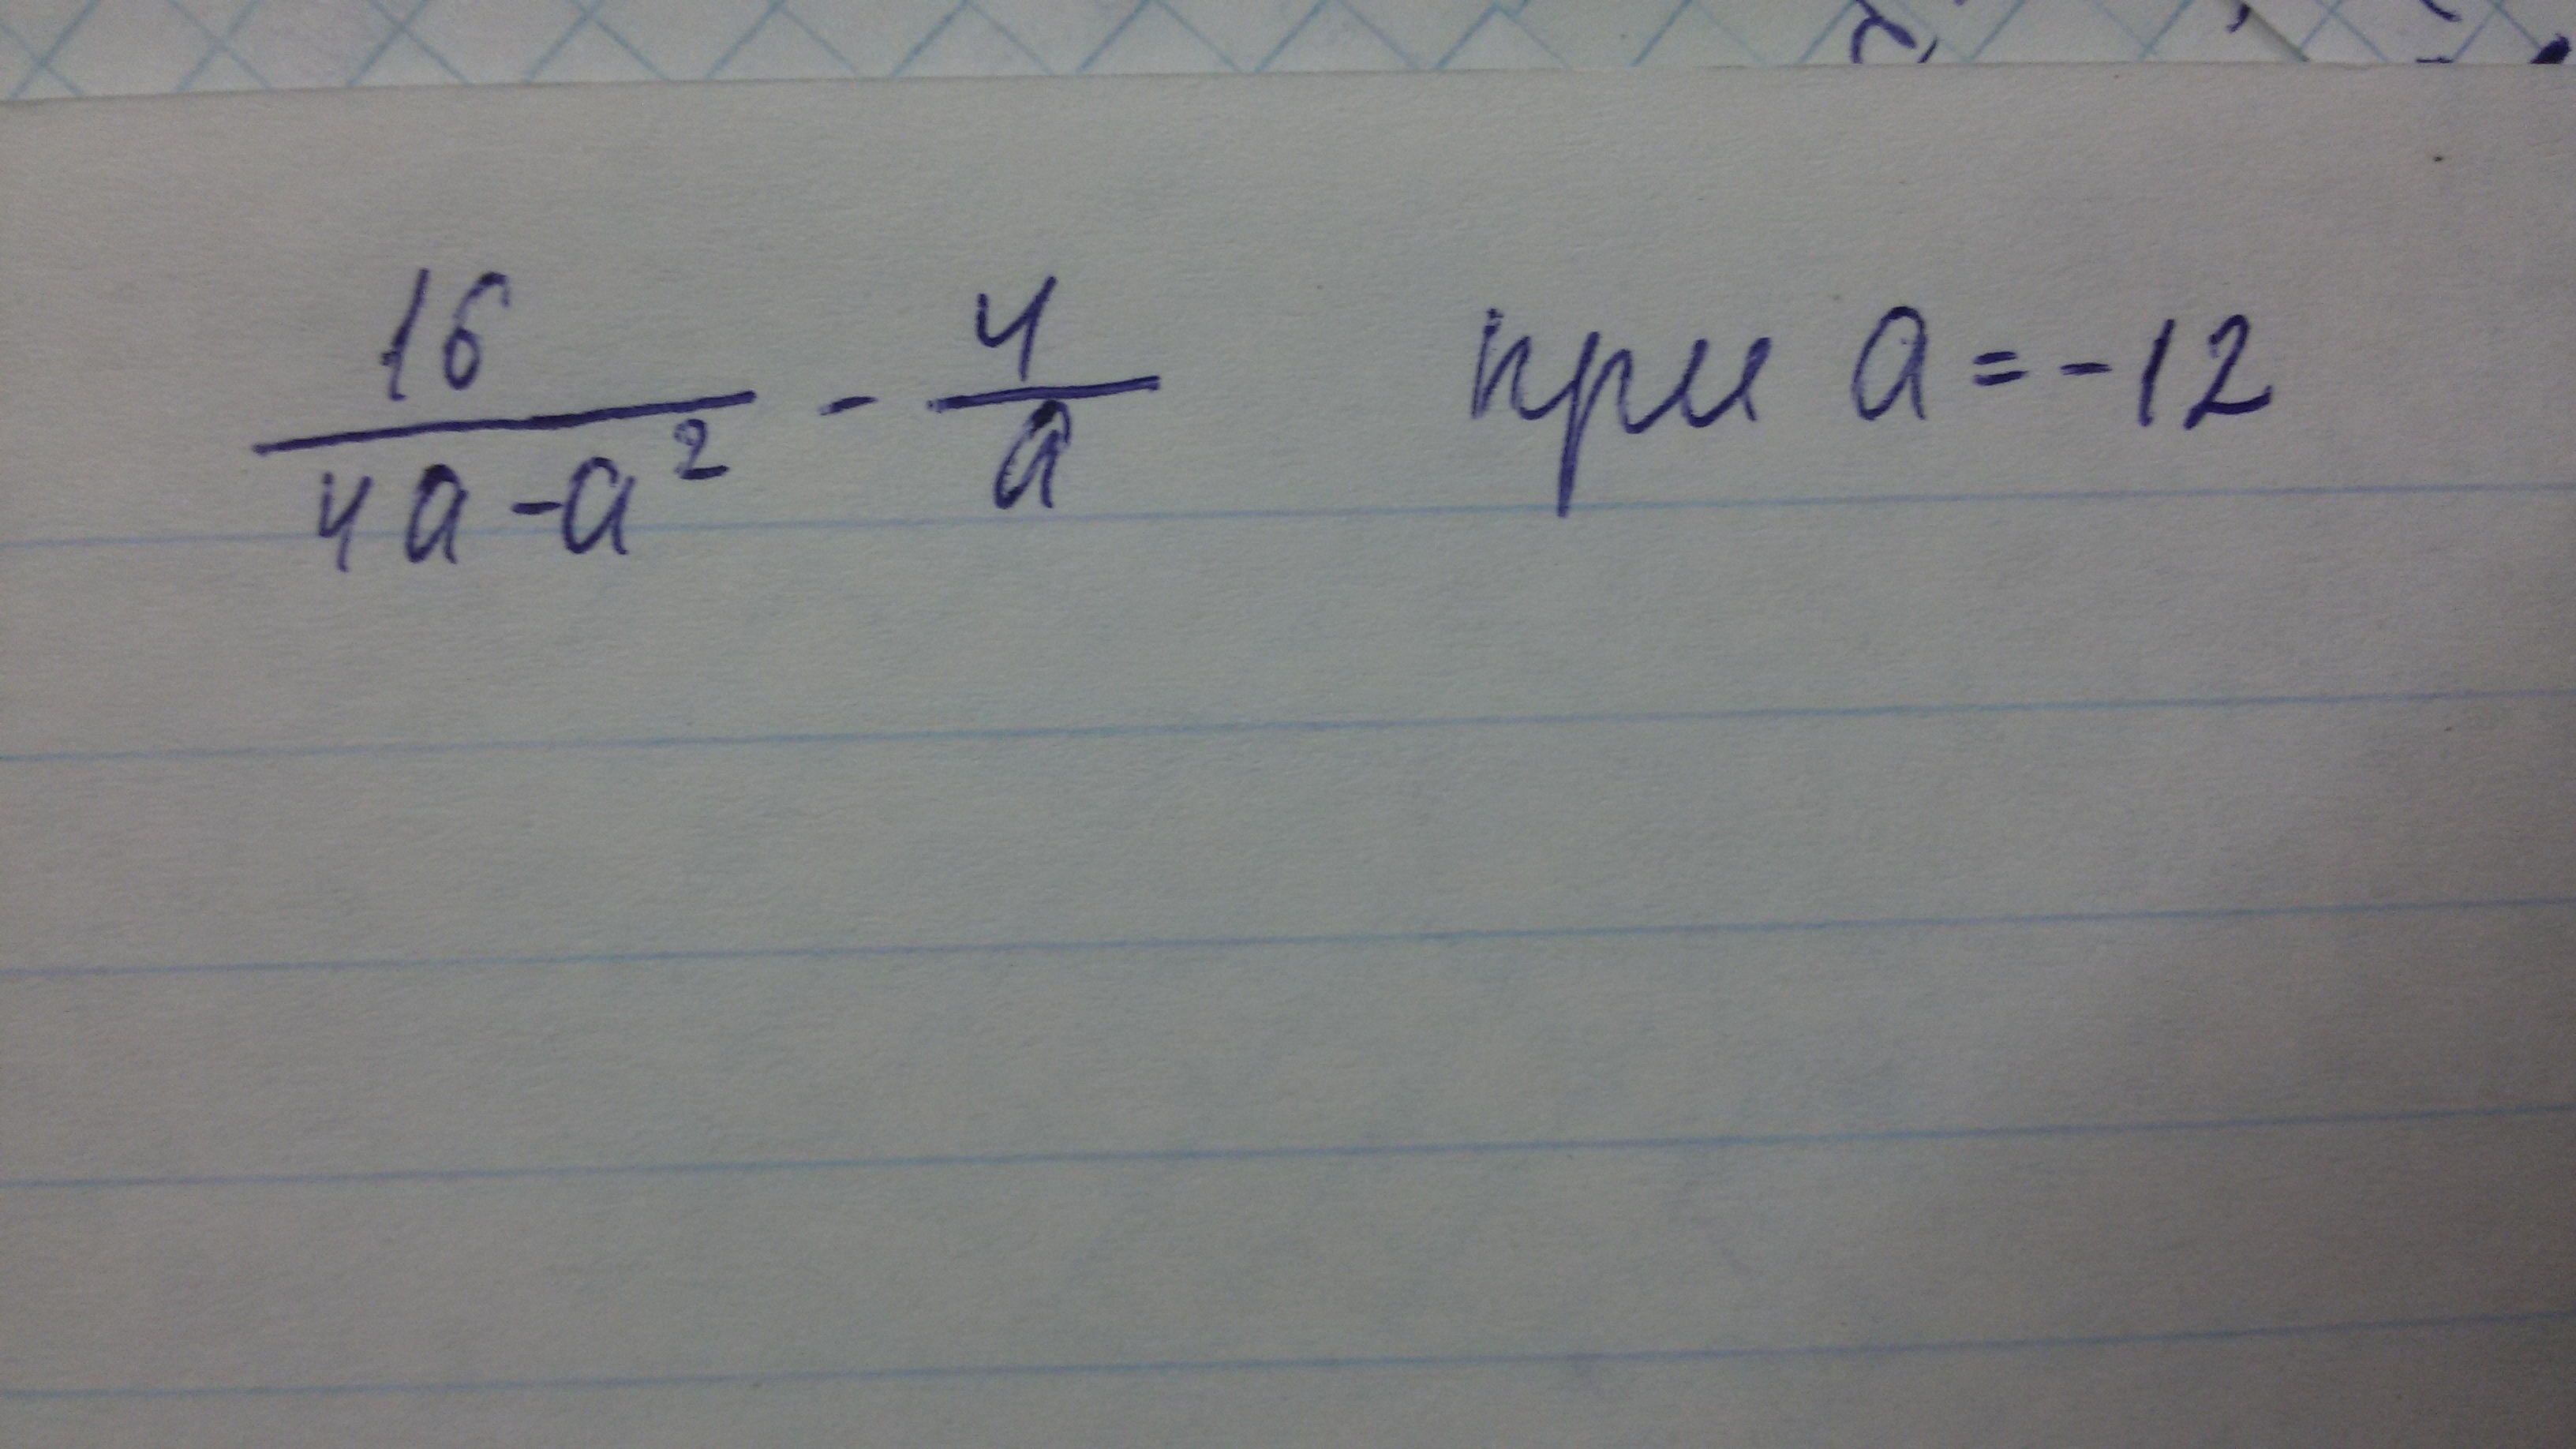 16/(4a-a²) - 4/a при a=-12